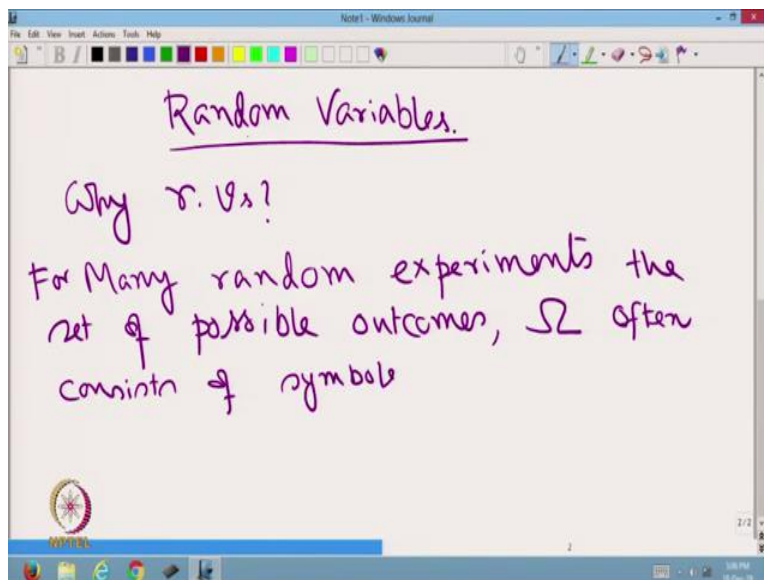 Note1 - Windows Journal
File Edit View Insert Actions Tools Help
B I
Random Variables.
Why r. vs?
For Many random experiments the
set of possible outcomes, Ω often
consists of symbols
NPTEL
2/2
2
5:06 PM